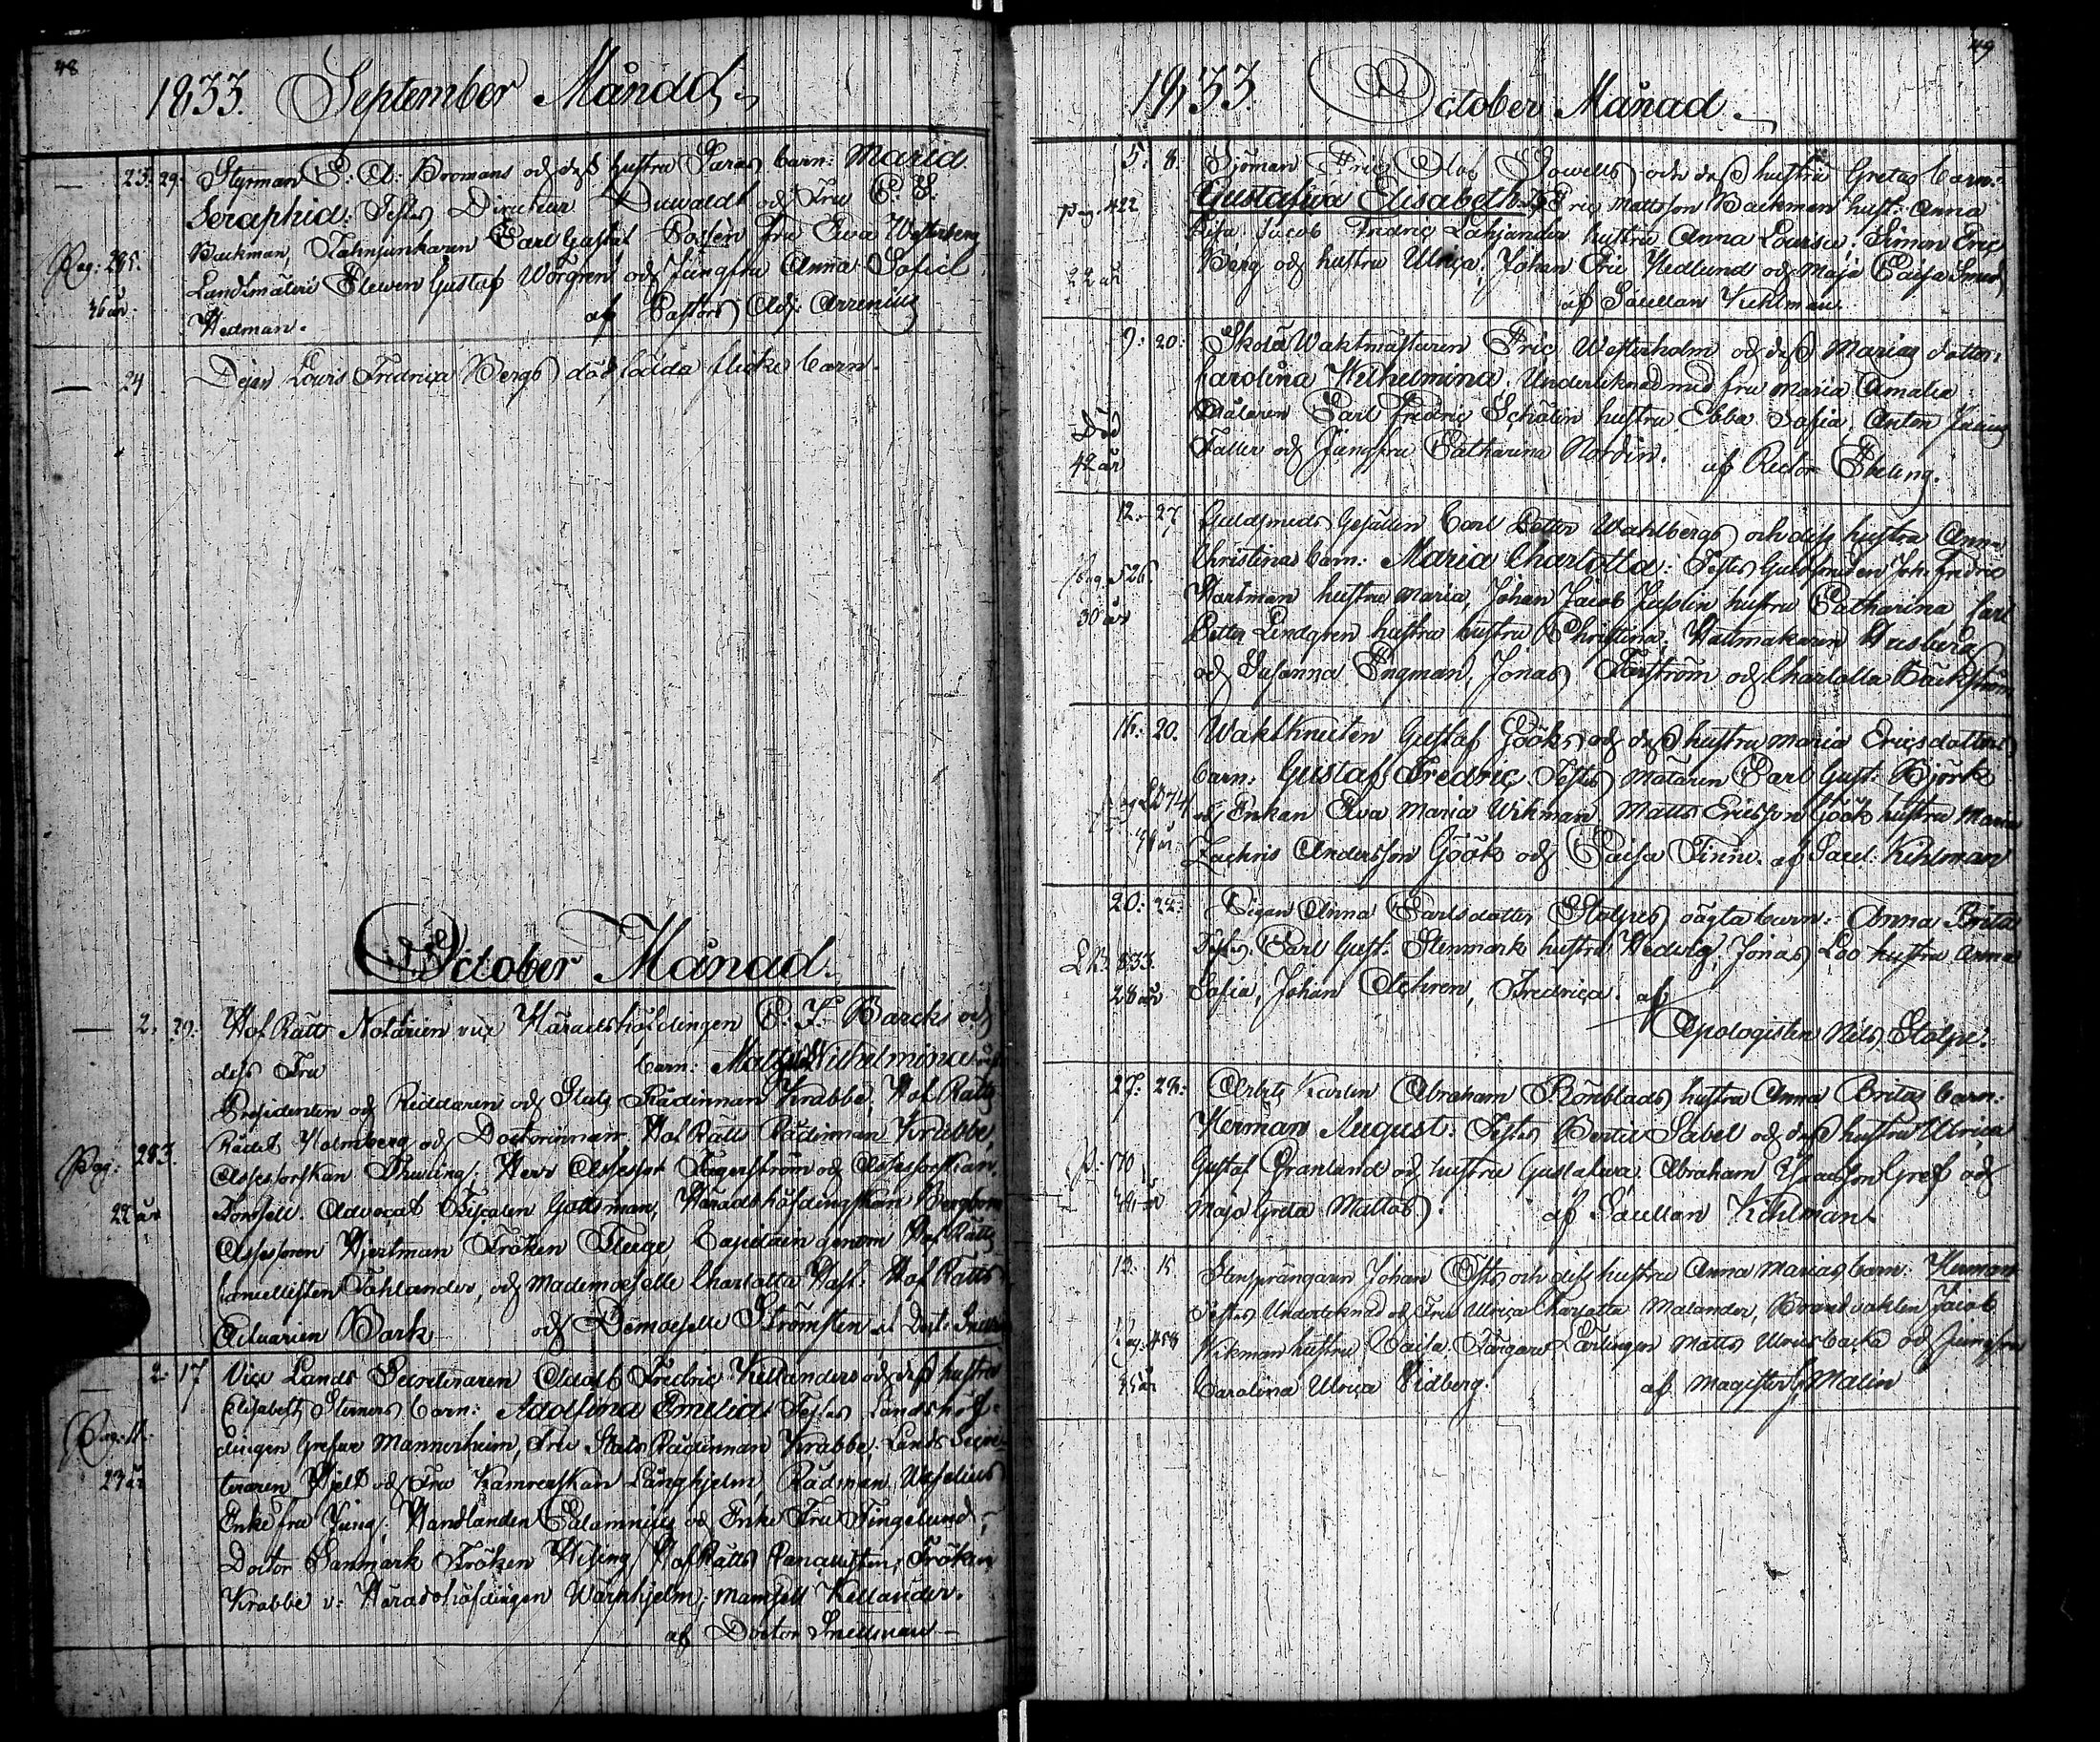 48
1833. September Månad.
23. 29. Styrman E: A: Bromans och dess hustru Saras barn: Maria
Seraphia: Testes Directeur Duwaldt och Fru C: E:
Backman, Carl Gustaf Fru Eva Westerberg
Pag: 295.
Landtmäteri Eleven Gustaf Worgren och Jungfru Anna Sofia
36 år.
Hedman. af Pastors Adj: Arrenius
24 Lovis Fredrica Bergs död födda flicke barn.
October Månad.
2. 20: Hof Rätts Notarien vice Häradshöfdingen C: F: Barcks och
dess Fru barn: Wilhelmina
Presidenten och Riddaren och Stats Rådinnan Krabbe, Hof Rätts
Rådet Holmberg och Hof Rätts Rådinnan Krabbe,
Pag: 283.
Assessorskan Thuring, Herr Assessor Fagerström och Assessorskan
22 år
Forssell. Advocat Fiscalen Gottsman, Häradshöfdingskan Bergbom
Assessoren Hjertman Fröken Fleege Capitain genom Hof Rätts
Cancellisten Fahlander, och Mademoiselle Charlotta Hast. Hof Rätts
Actuarien Bark och Demoiselle Strömsten af Doct:
2. 17 Vice Lands Secreteraren Adolf Fredric Kellanders och dess hustru
Elisabeth Sterners barn: Adolfina Emelia: Testes Landshöf-
dingen Grefve Mannerheim, Fru Stats Rådinnan Krabbe. Lands Secre-
23 år
teraren Hjelt och Fru Kamrerskan Långhjelm, Rådman Waselius
Enke fru Jung, Handlanden Calamnius och Enke Fru Fingelund,
Doctor Sanmark Fröken Wising, Hof Rätts Cancellisten, Fröken
Krabbe v: Häradshöfdingen Wärnhjelm, Mamsell Kellander.
af Doctor Snellman
49
1833. October Månad.
5. 8. Sjöman Eric Olof och dess hustru Gretas barn:
pag. 422
Gustafwa Elisabeth Eric Mattsson Backman hust: Anna
Lisa Jacob Fredric hustru Anna Lovisa; Simon Eric
22 år
Berg och hustru Ulrica, Johan Eric Hedlund och Maja Caisa Smed
af Sacellan Kihlman.
9. 20. Skola Waktmästaren Eric Westerholm och dess Marias dotter:
Carolina Wilhelmina. Undertecknad med fru Maria Amalia
Död
Målaren Carl Fredric Schalin hustru Ebba Sofia, Anton
42 år
Faller och Jungfru Catharina Nordin. af Rector Ebeling.
12. 27 Guldsmeds Gesällen Carl Petter Wahlbergs och dess hustru Anna
Christinas barn: Maria Charlotta: Testes Guldsmeden Joh: Fredric
Pag 526.
Hartman hustru Maria, Johan Jacob Jusslin hustru Catharina, Carl
30 år
Petter Lindgren hustru hustru Christina; Hattmakaren Husberg
och Susanna Engman, Jonas Forsström och Charlotta Bäckström
16. 20. Waktknekten Gustaf Gööks och dess hustru Maria Ericsdotters
barn: Gustaf Fredric Testes Mätaren Carl Gust: Björk
och Enkan Eva Maria Wikman. Matts Ericsson Göök hustru Maria
Zachris Andersson Göök och Caisa Finne. af Sacel: Kihlman
20. 22: Pigan Anna Carlsdotter Stolpes oägta barn: Anna Brita
Testes: Carl Gust: Stenmark hustru Hedvig, Jonas Loo hustru Anna
LB. 833.
28 år
Sofia, Johan Achren, Fredrica. af
Apologisten Nils Stolpe.
27. 28: Arbets Karlen Abraham Rönblads hustru Anna Britas barn:
Herman August: Testes Bertil Sabel och dess hustru Ulrica
P: 170
Gustaf Granlund och hustru Gustafwa. Abraham Isacsson Gref och
44 år
Maja Greta Mattas. af Sacellan Kihlman
12. 15 Stensprängaren Johan Östs och dess hustru Anna Marias barn: Herman
Testes Undertecknad och Fru Ulrica Charlotta Malander, Brandvakten Jacob
Pag: 458
Wikman hustru Caisa Färgare Lärlingen Matts Ulricsbacka och Jungfru
35 år
Carolina Ulrica Widberg. af Magister Malin